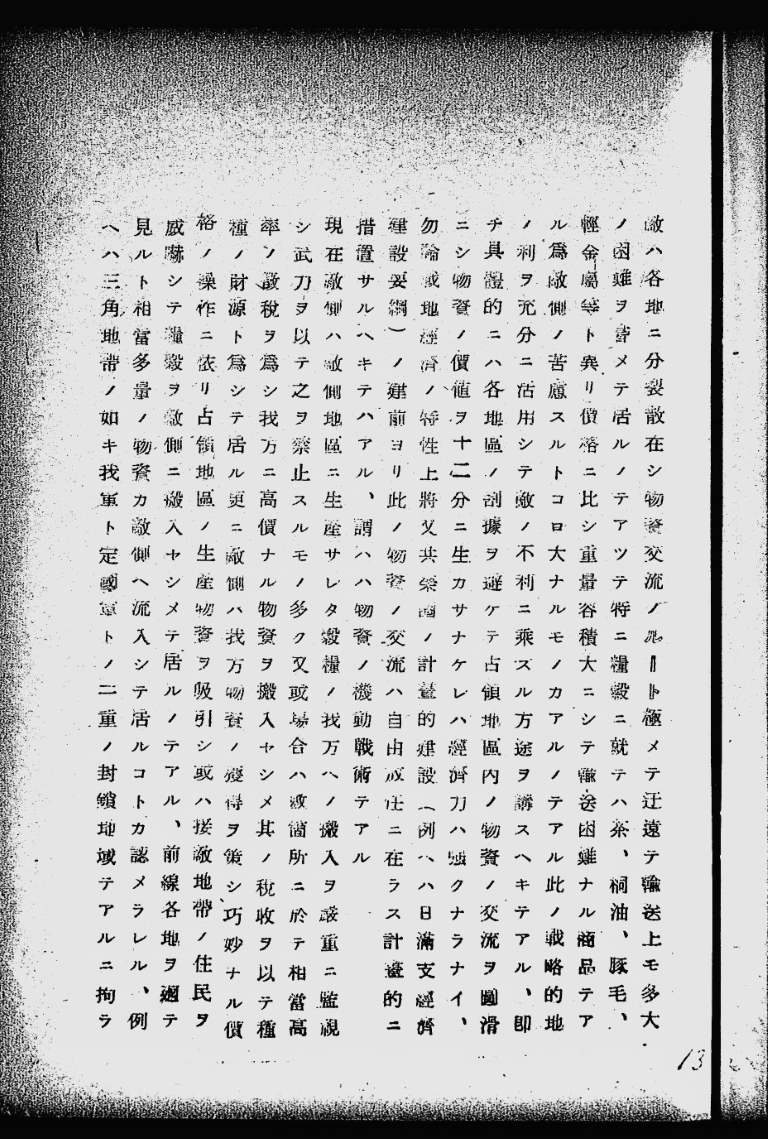 敵ハ各地ニ分裂散在シ物資交流ノルート極メテ迂遠テ輸送上モ多大
ノ困難ヲ嘗メテ居ルノテアツテ特ニ糧穀ニ就テハ茶、桐油、豚毛、
輕金屬等ト異リ價格ニ比シ重量容積大ニシテ輸送困難ナル商品テア
ル爲敵側ノ苦慮スルトコロ大ナルモノカアルノテアル此ノ戰略的地
ノ利ヲ充分ニ活用シテ敵ノ不利ニ乘ズル方途ヲ講スヘキテアル、即
チ具體的ニハ各地區ノ割據ヲ避ケテ占領地區内ノ物資ノ交流ヲ圓滑
ニシ物資ノ價値ヲ十二分ニ生カサナケレハ經濟力ハ强クナラナイ、
勿論或地經濟ノ特性上將又共榮圈ノ計畫的建設（例ヘハ日滿支經濟
建設要綱）ノ建前ヨリ此ノ物資ノ交流ハ自由放任ニ在ラス計畫的ニ
措置サルヘキテハアル、謂ハハ物資ノ機動戰術テアル
現在敵側ハ敵側地區ニ生產サレタ穀糧ノ我方ヘノ搬入ヲ嚴重ニ監視
シ武力ヲ以テ之ヲ禁止スルモノ多ク又或場合ハ數箇所ニ於テ相當高
率ノ徵稅ヲ爲シ我方ニ高價ナル物資ヲ搬入セシメ其ノ稅收ヲ以テ種
種ノ財源ト爲シテ居ル更ニ敵側ハ我方物資ノ獲得ヲ策シ巧妙ナル價
格ノ操作ニ依リ占領地區ノ生產物資ヲ吸引シ或ハ接敵地帶ノ住民ヲ
威嚇シテ糧穀ヲ敵側ニ搬入セシメテ居ルノテアル、前線各地ヲ廻テ
見ルト相當多量ノ物資カ敵側ヘ流入シテ居ルコトカ認メラレル、例
ヘハ三角地帶ノ如キ我軍ト定國軍トノ二重ノ封鎖地域テアルニ拘ラ
13